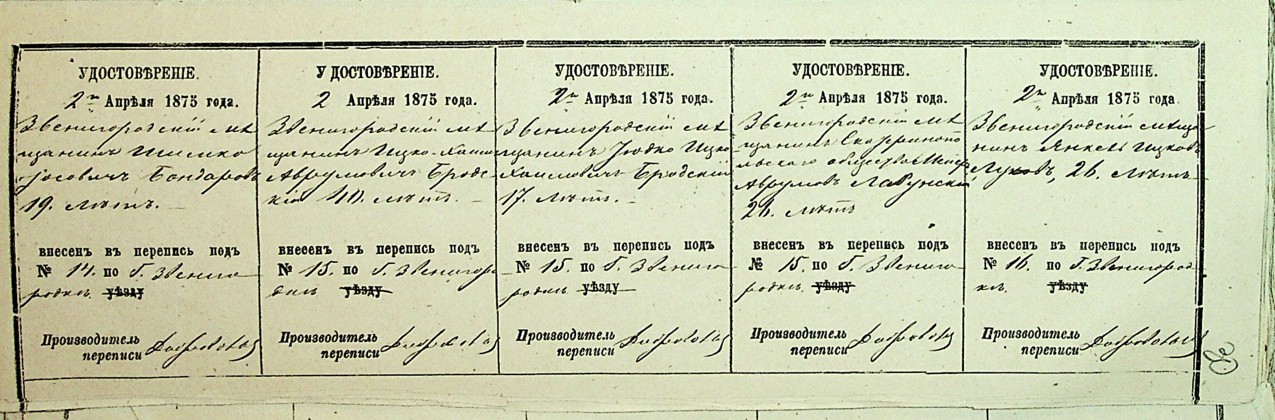 УДОСТОВѢРЕНІЕ.
2го Апрѣля 1875 года.
Звенигородскій мѣ
щанинъ Шимко
Іосовичъ Бондаровъ
19. лѣтъ.
внесенъ въ перепись подъ
№ 14. по Г. Звениго
родкѣ уѣзду
Производитель
переписи
УДОСТОВѢРЕНІЕ.
2 Апрѣля 1875 года.
Звенигородскій мѣ
щанинъ Ицко-Хаим
Аврумовичъ Бродс
кій 40. лѣтъ.
внесенъ въ перепись подъ
№ 15. по Г. Звенигоро
дкѣ уѣзду
Производитель
переписи
УДОСТОВѢРЕНІЕ.
2го Апрѣля 1875 года.
Звенигородскій мѣ
щанинъ Юдко Ицко
Хаимовичъ Бродскій
17. лѣтъ.
внесенъ въ перепись подъ
№ 15. по Г. Звениго
родкѣ уѣзду
Производитель
переписи
УДОСТОВѢРЕНІЕ.
2го Апрѣля 1875 года.
Звенигородскій мѣ
щанинъ Екатериноп
льскаго общества
Аврумовъ
26. лѣтъ
внесенъ въ перепись подъ
№ 15. по Г. Звениго
родкѣ уѣзду
Производитель
переписи
УДОСТОВѢРЕНІЕ.
2го Апрѣля 1875 года
Звенигородскій мѣща
нинъ Янкель Ицков
26. лѣтъ
внесенъ въ перепись подъ
№ 16. по Г. Звенигород
кѣ. уѣзду
Производитель
переписи